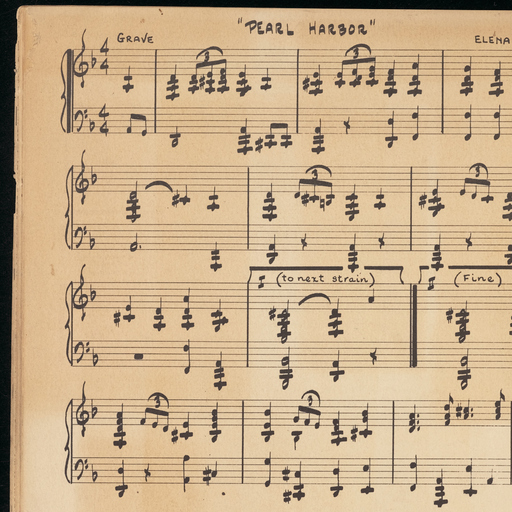 "PEARL HARBOR"
GRAVE
ELENA
4
4
3
3
4
4
3
3
(to next strain)
(Fine)
3
3